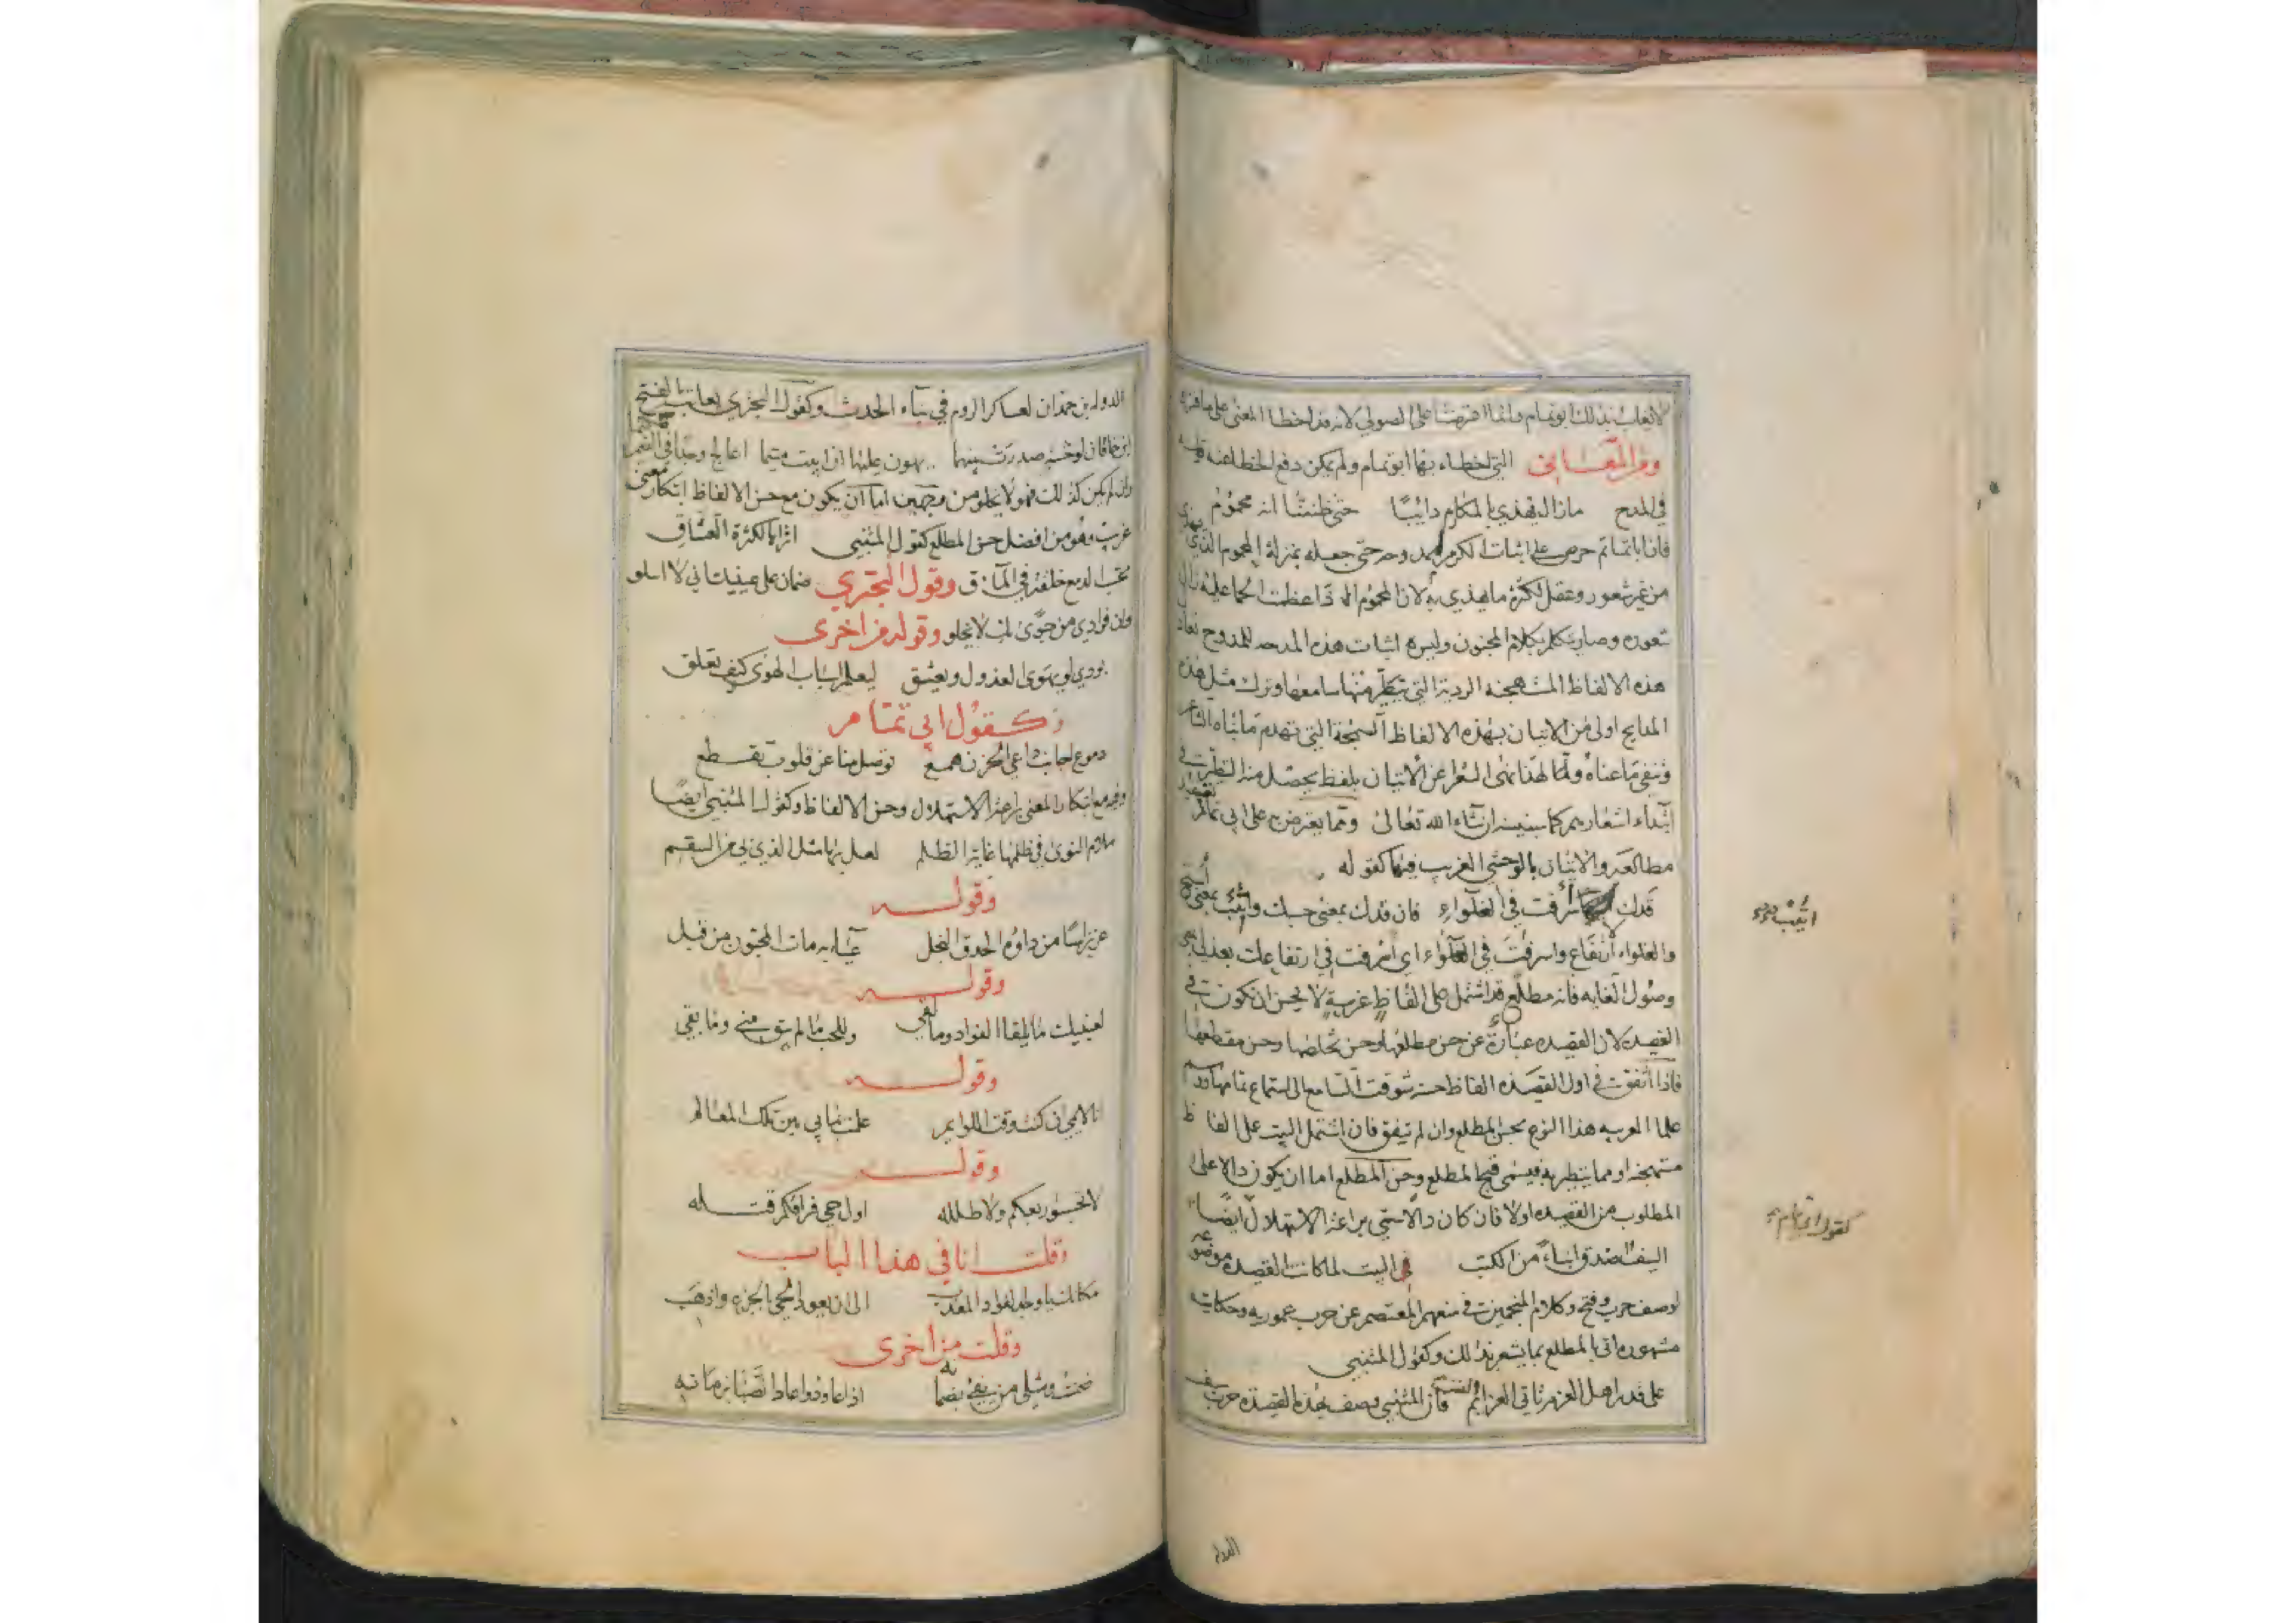 لا يعاب بذلك ابو تمام وانما افترضنا على الصولي لانه قد اخطا المعنى على ما فسره
ومن المعاني التي اخطاء بها ابو تمام ولم يمكن دفع الخطا عنه قوله
في المدح مازال يهذي بالمكارم دائبًا حتى ظننتا انه محموم
فان اباتمام حرص على اثبات الكرم لممدوحه حتى جعله بمنزلة المحموم الذي يهذي
من غير شعور وعقل لكثرة ما يهذي به لان المحموم اذا عظمت الحما عليه زال
شعوره وصار يتكلم بكلام المجنون وليس اثبات هذه المدحه للمدوح
هذه الالفاظ المستهجنه الردية التي منها سامعها وترك مثل هذه
المدايح اولى من الاتيان بهذه الالفاظ السمجة التي تهدم ما بناه الشاعر
وتنفي ما عناه ولهذا نهى الشعرا عن الاتيان بلفظ يحصل منه التطير في
ابتداء اشعارهم كما سنبينه ان شاء الله تعالى ومما يعترض على ابي تمام
مطالعه والاتيان بالوحشي الغريب فيها كقوله
قدك اسرفت في الغلواء فان قدك بمعنى حسبك واتئب بمعنى استح
والغلواء ارتفاع واسرفت في الغلواء اي اسرفت في ارتفاعك بعذلي
وصول الغايه فانه مطلع قد اشتمل على الفاظ غريبة لا يحسن ان تكون في
القصيده لان القصيده عبارة عن حسن مطلعها وحسن تخلصها وحسن مقطعها
فاذا اتفقت في اول القصيده الفاظ حسنه شوقت السامع الى استماع تمامها
علما العربيه هذا النوع بحسن المطلع وان لم يتفق فان اشتمل البيت على الفاظ
مستهجنه او مما يتطير به فيسمى قبيح المطلع وحسن المطلع اما ان يكون دالا على
المطلوب من القصيده اولا فان كان دالا سمي براعة الاستهلال ايضًا
السيف اصدق انباءً من الكتب في البيت لما كانت القصيده موضوعة
لوصف حرب وفتح وكلام المنجمين في منعهم المعتصم عن حرب عموريه وحكايته
مشهوره اتى بالمطلع بما يشعر بذلك وكقول المتنبي
على قدر اهل العزم تاتي العزائم فان المتنبي وصف بهذه القصيده حرب سيف
اتئب
كقول ابي تمام
الدوله
الدوله بن حمدان لعساكر الروم في بناء الحدث وكقول البحتري يعاتب الفتح
ابن خاقان يهون عليها ان ابيت متيما اعالج وجدا في الضمير
وان لم يكن كذلك فهو لا يخلو من وجهين اما ان يكون مع حسن الالفاظ ابتكار معنى
غريب وهو من افضل حسن المطلع كقول المتنبي اتراها لكثرة العشاق
تحسب الدمع خلقة في المآق وقول البحتري ضمان على عينيك اني لا اسلو
وان فؤادي من جوًى بك لا يخلو وقوله من اخرى
بودي لو يهوى العذول ويعشق ليعلم اسباب الهوى كيف تعلق
وكقول ابي تمام
دموع اجابت داعي الحزن همع توصل منا عن قلوب تقطع
وفيه مع ابتكار المعنى براعة الاستهلال وحسن الالفاظ وكقول المتنبي ايضًا
ملام النوى في ظلمها غاية الظلم لعل بها مثل الذي بي من السقم
وقوله
عزيز اسا من داؤه الحدق النجل عياء به مات المحبون من قبل
وقوله
لعينيك ما يلقا الفواد وما لقي وللحب ما لم يبق مني وما بقي
وقوله
انا لايمي ان كنت وقت اللوايم علمت بما بي بين تلك المعالم
وقوله
لا تحسبوا ربعكم ولا طلله اول حي فراقكم قتله
وقلت انا في هذا الباب
الى ان يعود الحي بالجزع
وقلت من اخرى